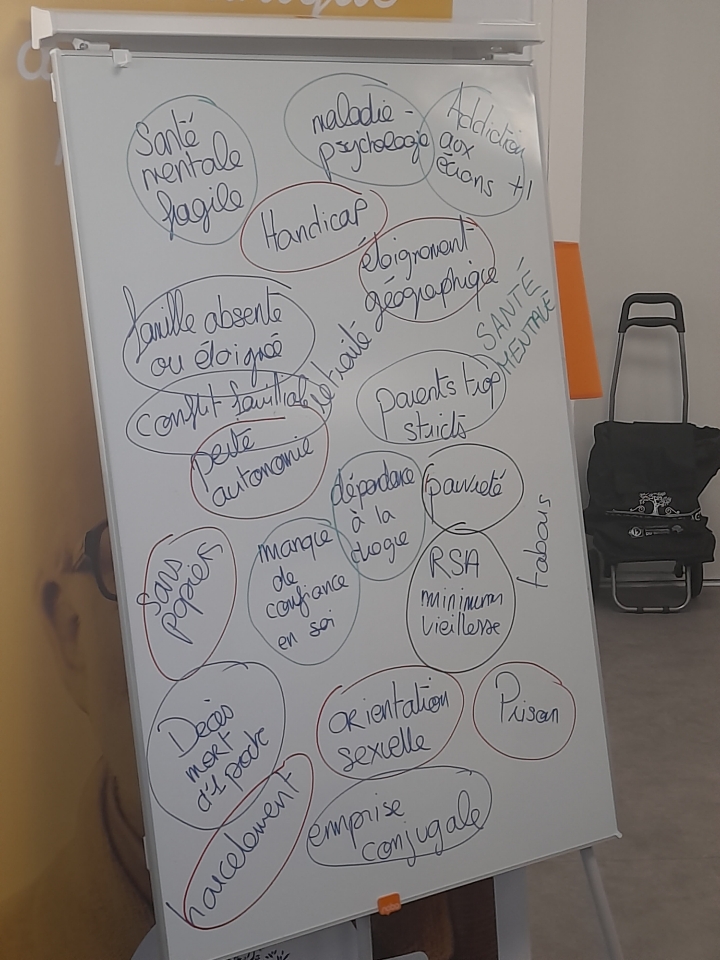 Santé
mentale
fragile
maladie -
psychologie
Addiction
aux
écrans ++
Handicap
éloignement
géographique
SANTÉ
MENTALE
famille absente
ou éloignée
retraité
conflit familial
parents trop
stricts
perte
autonomie
dépendance
à la
drogue
pauvreté
tabous
Sans
papier
manque
de
confiance
en soi
RSA
minimum
vieillesse
Décès
mort
d'1 proche
orientation
sexuelle
Prison
harcelement
emprise
conjugale